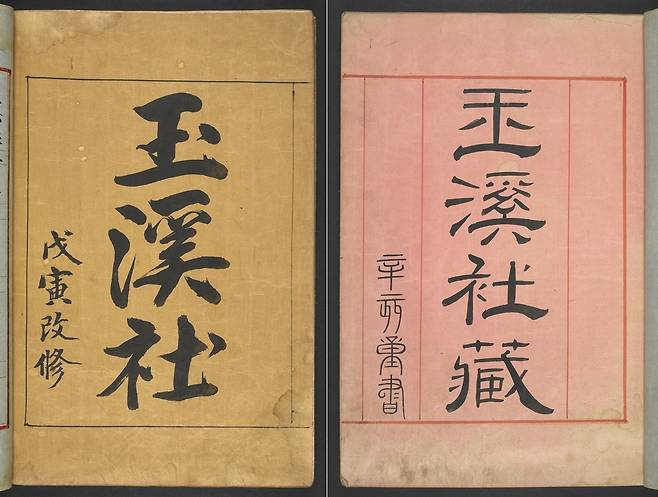 玉溪社
戊寅改修
玉溪社藏
辛亥書